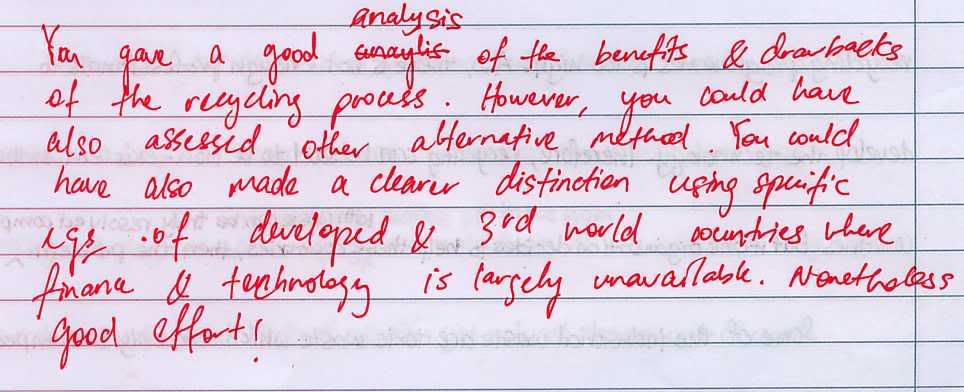 analysis
You gave a good anaylis of the benefits & drawbacks
of the recycling process. However, you could have
also assessed other alternative method. You could
have also made a clearer distinction using specific
egs. of developed & 3rd world countries where
finance & technology is largely unavailable. Nonetheless
good effort!